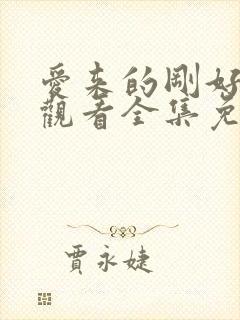 愛来的剛好
觀看全集免
賈永婕